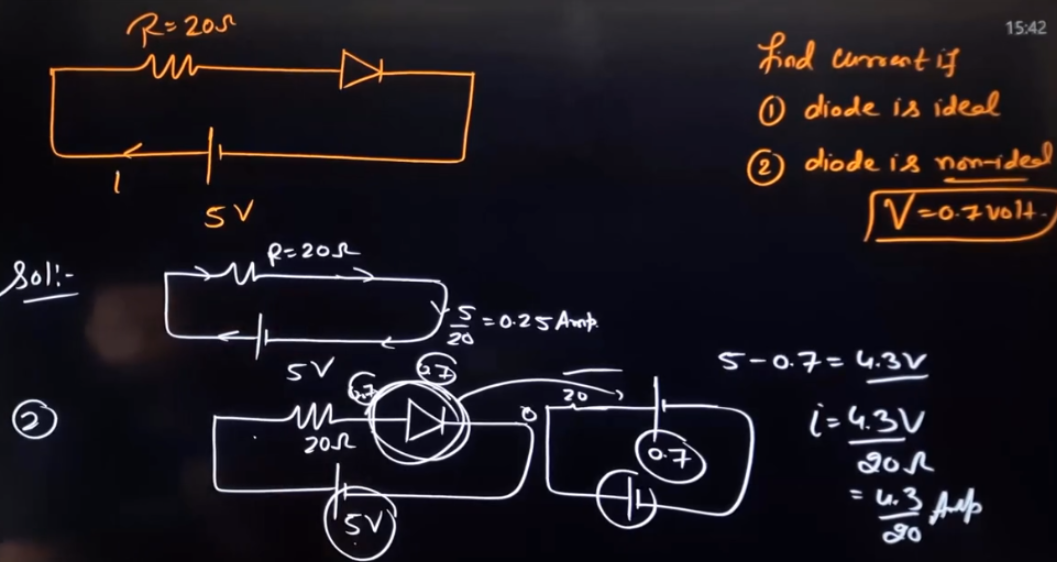 15:42
R=20Ω
find current if
① diode is ideal
② diode is non-ideal
V=0.7 volt.
I
5V
Sol:-
R=20Ω
5/20 = 0.25 Amp.
5V
②
0.7
20Ω
5V
0
20
0.7
5-0.7= 4.3V
i= 4.3V/20Ω
= 4.3/20 Amp